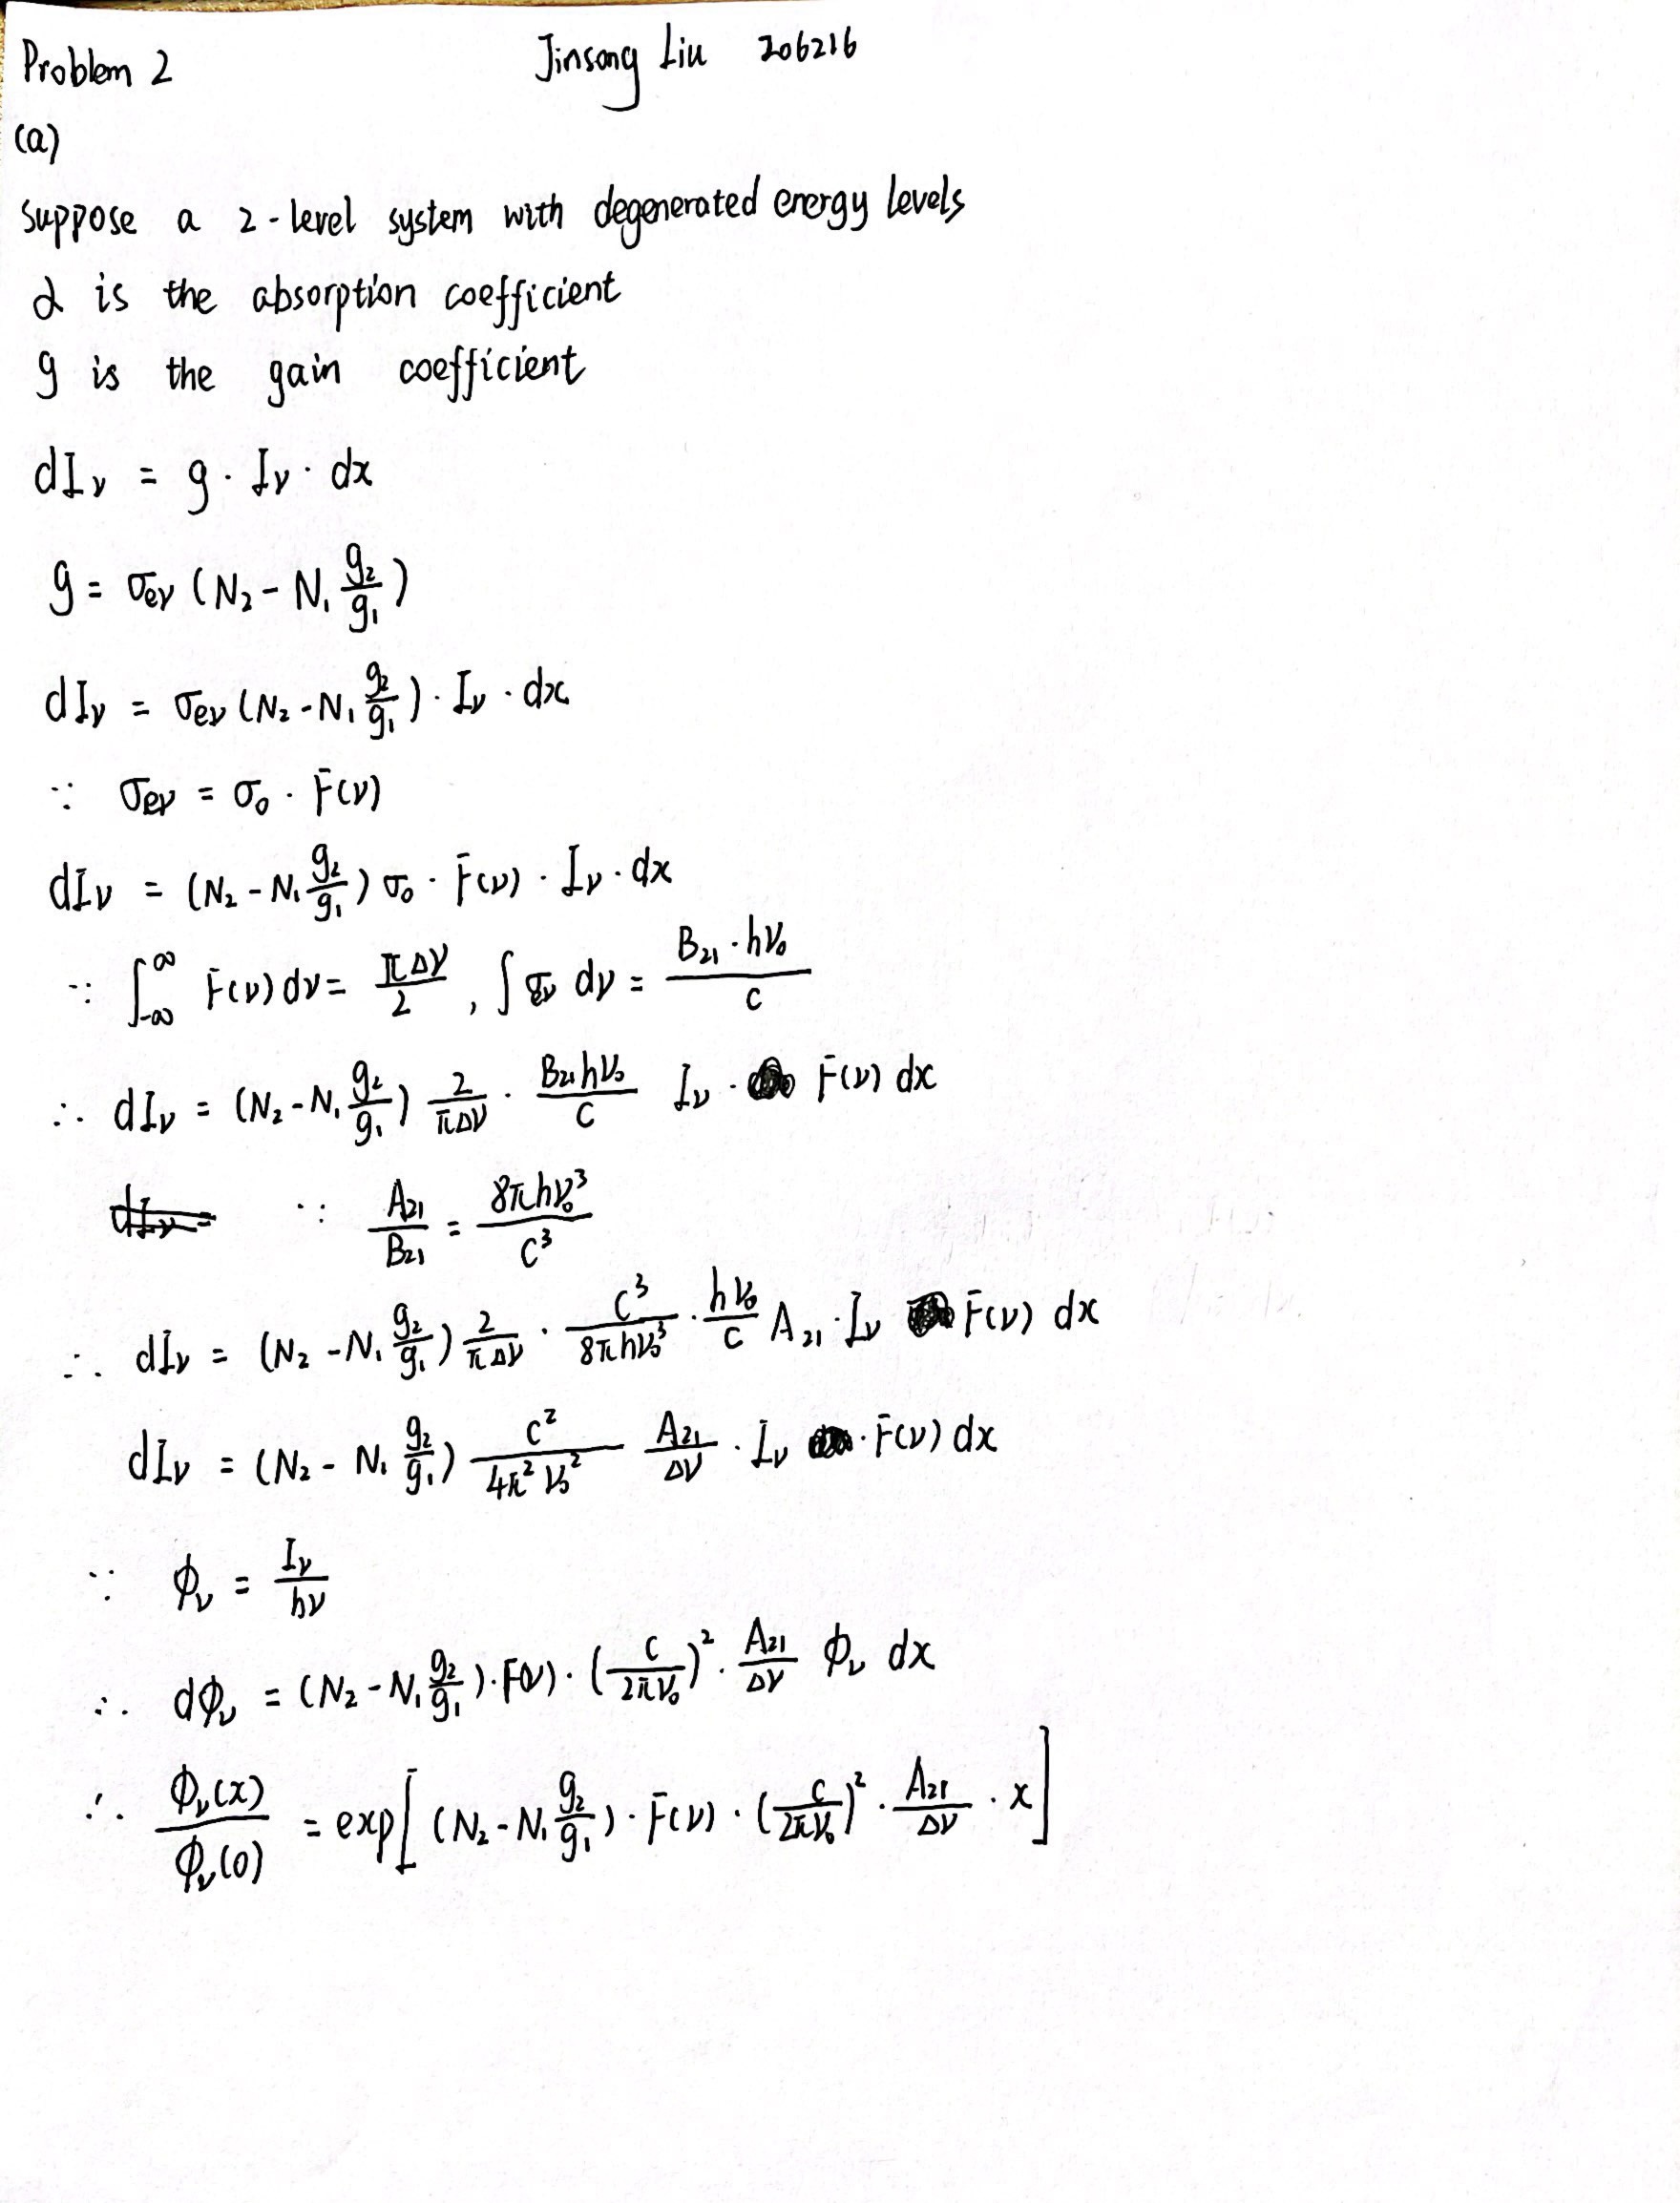 Problem 2 Jinsong Liu 206216
(a)
suppose a 2-level system with degenerated energy levels
α is the absorption coefficient
g is the gain coefficient
dI_ν = g · I_ν · dx
g = σ_eν (N₂ - N₁ g₂/g₁)
dI_ν = σ_eν (N₂ - N₁ g₂/g₁) · I_ν · dx
∵ σ_eν = σ₀ · F(ν)
dI_ν = (N₂ - N₁ g₂/g₁) σ₀ · F(ν) · I_ν · dx
∵ ∫_{-∞}^{∞} F(ν) dν = πΔν/2 , ∫ σ_eν dν = B₂₁ · hν₀ / c
∴ dI_ν = (N₂ - N₁ g₂/g₁) 2/(πΔν) · B₂₁hν₀/c I_ν · F(ν) dx
∵ A₂₁/B₂₁ = 8πhν₀³/c³
∴ dI_ν = (N₂ - N₁ g₂/g₁) 2/(πΔν) · c³/(8πhν₀³) · hν₀/c A₂₁ · I_ν F(ν) dx
dI_ν = (N₂ - N₁ g₂/g₁) c²/(4π²ν₀²) A₂₁/Δν · I_ν · F(ν) dx
∵ ϕ_ν = I_ν/hν
∴ dϕ_ν = (N₂ - N₁ g₂/g₁) · F(ν) · (c/(2πν₀))² · A₂₁/Δν ϕ_ν dx
∴ ϕ_ν(x)/ϕ_ν(0) = exp[ (N₂ - N₁ g₂/g₁) · F(ν) · (c/(2πν₀))² · A₂₁/Δν · x ]